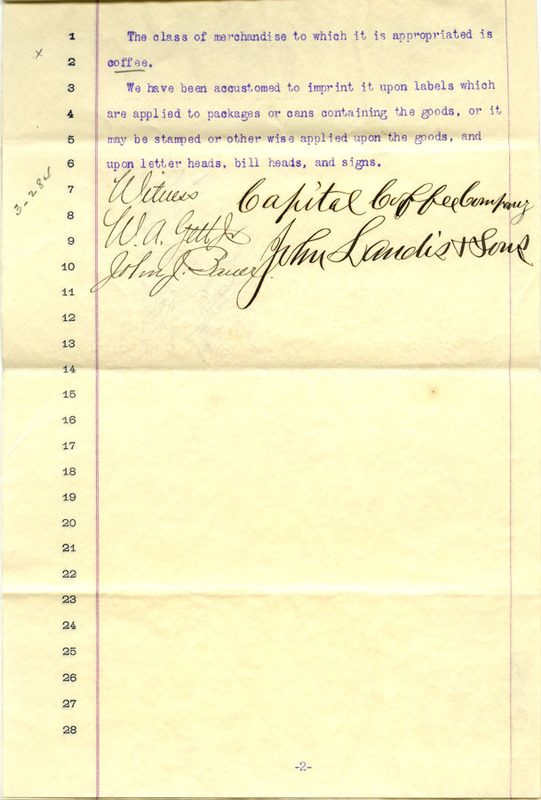 1 The class of merchandise to which it is appropriated is
x
2 coffee.
3 We have been accustomed to imprint it upon labels which
4 are applied to packages or cans containing the goods, or it
5 may be stamped or other wise applied upon the goods, and
6 upon letter heads, bill heads, and signs.
3-284
7 Witness Capital Coffee Company
8 W. A. Gett Jr
9 John Landis & Sons
10 John J. Bauer
11
12
13
14
15
16
17
18
19
20
21
22
23
24
25
26
27
28
-2-